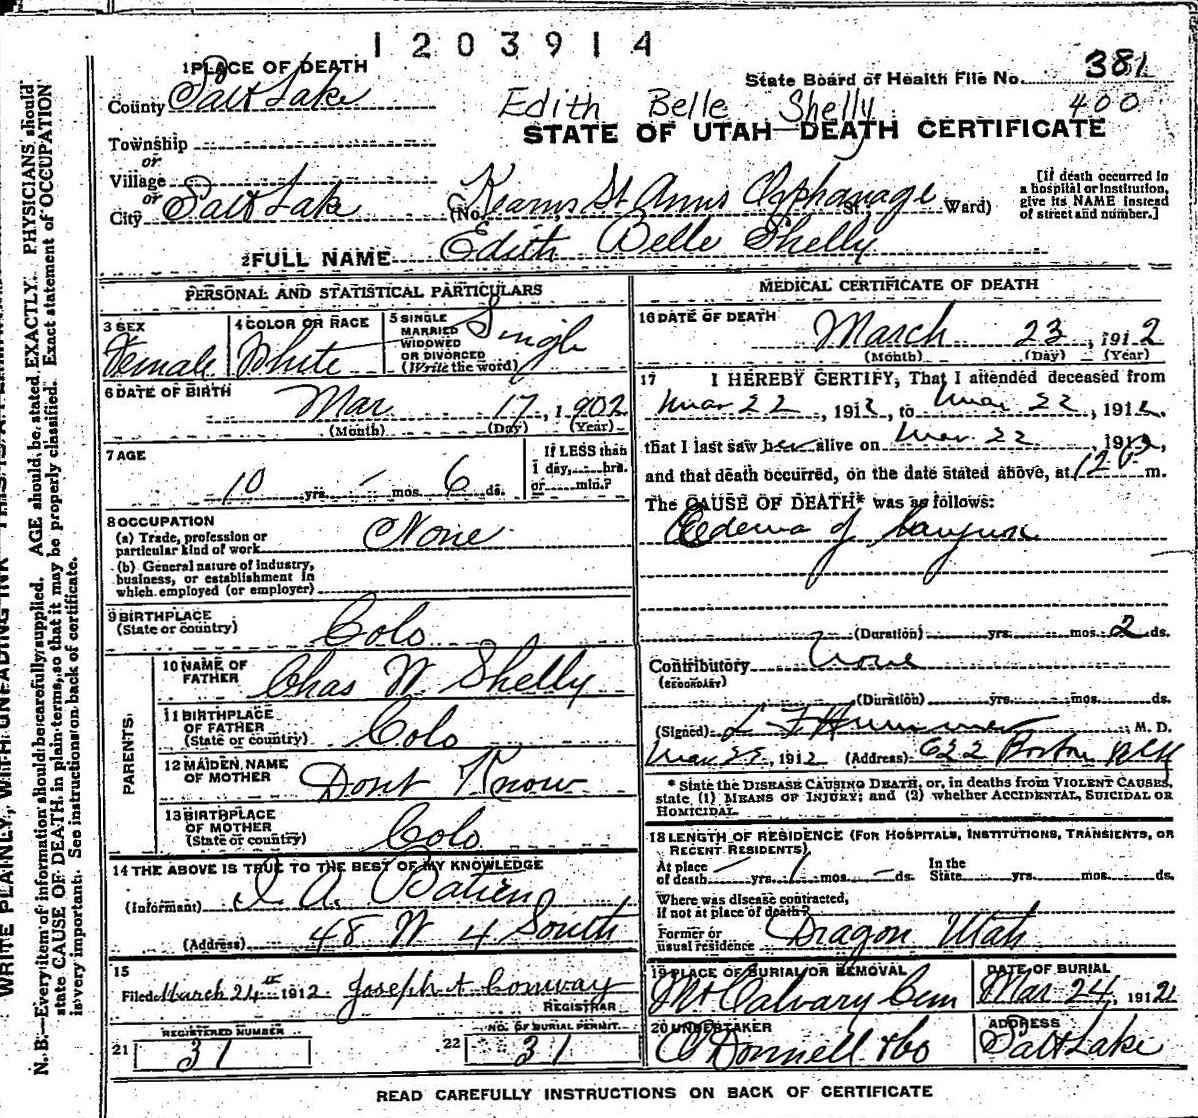 1203914
1 PLACE OF DEATH
State Board of Health File No. 381
County Salt Lake
Edith Belle Shelly 400
STATE OF UTAH DEATH CERTIFICATE
Township
or
Village
or
City Salt Lake (No. Kearns St Anns Orphanage St., Ward)
[If death occurred in
a hospital or institution,
give its NAME instead
of street and number.]
2 FULL NAME Edith Belle Shelly
PERSONAL AND STATISTICAL PARTICULARS
3 SEX Female
4 COLOR OR RACE White
5 SINGLE
MARRIED
WIDOWED
OR DIVORCED
(Write the word) Single
6 DATE OF BIRTH Mar 17, 1902
(Month) (Day) (Year)
7 AGE 10 yrs. - mos. 6 ds.
If LESS than
1 day, hrs.
or min.?
8 OCCUPATION
(a) Trade, profession or
particular kind of work None
(b) General nature of industry,
business, or establishment in
which employed (or employer)
9 BIRTHPLACE
(State or country) Colo
PARENTS
10 NAME OF
FATHER Chas W Shelly
11 BIRTHPLACE
OF FATHER
(State or country) Colo
12 MAIDEN NAME
OF MOTHER Dont Know
13 BIRTHPLACE
OF MOTHER
(State or country) Colo
14 THE ABOVE IS TRUE TO THE BEST OF MY KNOWLEDGE
(Informant) A.
(Address) 48 W 4 South
15
Filed March 24th 1912. Joseph A Conway
REGISTRAR
REGISTERED NUMBER
21 31
NO. OF BURIAL PERMIT
22 31
MEDICAL CERTIFICATE OF DEATH
16 DATE OF DEATH
March 23, 1912
(Month) (Day) (Year)
17 I HEREBY CERTIFY, That I attended deceased from
Mar 22, 1912, to Mar 22, 1912.
that I last saw her alive on Mar. 22, 1912,
and that death occurred, on the date stated above, at m.
The CAUSE OF DEATH* was as follows:
Edema of Larynx
(Duration) yrs. mos. 2 ds.
Contributory None
(SECONDARY)
(Duration) yrs. mos. ds.
(Signed) M. D.
1912 (Address) 622 Boston Bldg
* State the DISEASE CAUSING DEATH, or, in deaths from VIOLENT CAUSES,
state (1) MEANS OF INJURY; and (2) whether ACCIDENTAL, SUICIDAL OR
HOMICIDAL.
18 LENGTH OF RESIDENCE (FOR HOSPITALS, INSTITUTIONS, TRANSIENTS, OR
RECENT RESIDENTS).
At place
of death - yrs. 1 mos. - ds. In the
State yrs. mos. ds.
Where was disease contracted,
if not at place of death?
Former or
usual residence Dragon Utah
19 PLACE OF BURIAL OR REMOVAL
Mt Calvary Cem
DATE OF BURIAL
Mar 24, 1912
20 UNDERTAKER
O'Donnell & Co
ADDRESS
Salt Lake
READ CAREFULLY INSTRUCTIONS ON BACK OF CERTIFICATE
WRITE PLAINLY, WITH UNFADING INK
N. B.—Every item of information should be carefully supplied. AGE should be stated EXACTLY. PHYSICIANS should
state CAUSE OF DEATH in plain terms, so that it may be properly classified. Exact statement of OCCUPATION
is very important. See instructions on back of certificate.